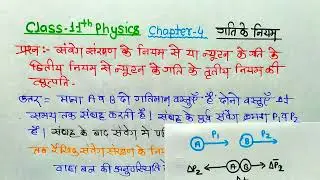 Class-11th Physics Chapter-4 गति के नियम
प्रश्न:- संवेग संरक्षण के नियम से या न्यूटन के गति के
द्वितीय नियम से न्यूटन के गति के तृतीय नियम की
उत्तर:- माना A व B दो गतिमान वस्तुएँ हैं दोनों वस्तुएँ Δt
समय तक संघट्ट करती हैं। संघट्ट के पूर्व संवेग क्रमशः P₁ व P₂
हैं। संघट्ट के बाद संवेग में
संवेग संरक्षण के
बाह्य बल की अनुपस्थिति
A P₁ B P₂
ΔP₁ A B ΔP₂